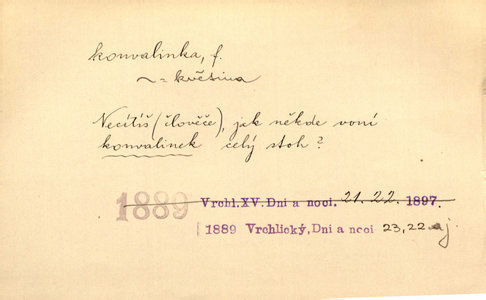 konvalinka, f.
~ = květina
Necítíš (člověče), jak někde voní
konvalinek celý stoh?
1889 Vrchl.XV. Dni a noci. 21.22. 1897.
[1889 Vrchlický, Dni a noci 23,22 aj